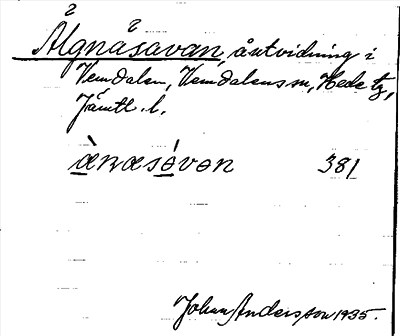 2 2
Älgnäsavan, åutvidning i
Vemdalen, Vemdalens sn, Hede tg,
Jämtl. l.
æ̀næsə́vən 381
Johan Andersson 1935.